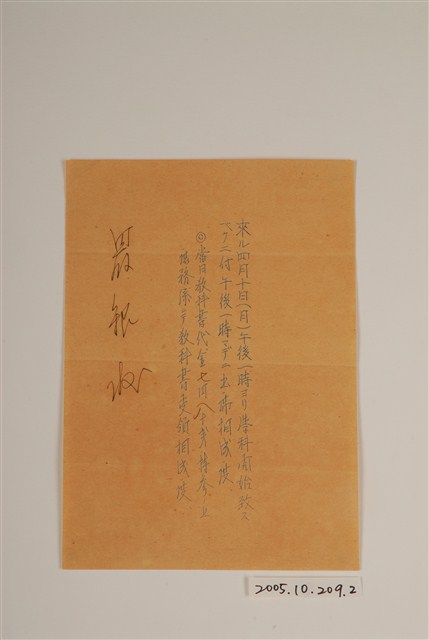 來ル四月十日(月)午後一時ヨリ學科開始致ス
ベクニ付午後一時マデニ出席相成度
◎當日教科書代金七円八十銭持参ノ上
庶務係ヨリ教科書受領相成度
2005.10.209.2